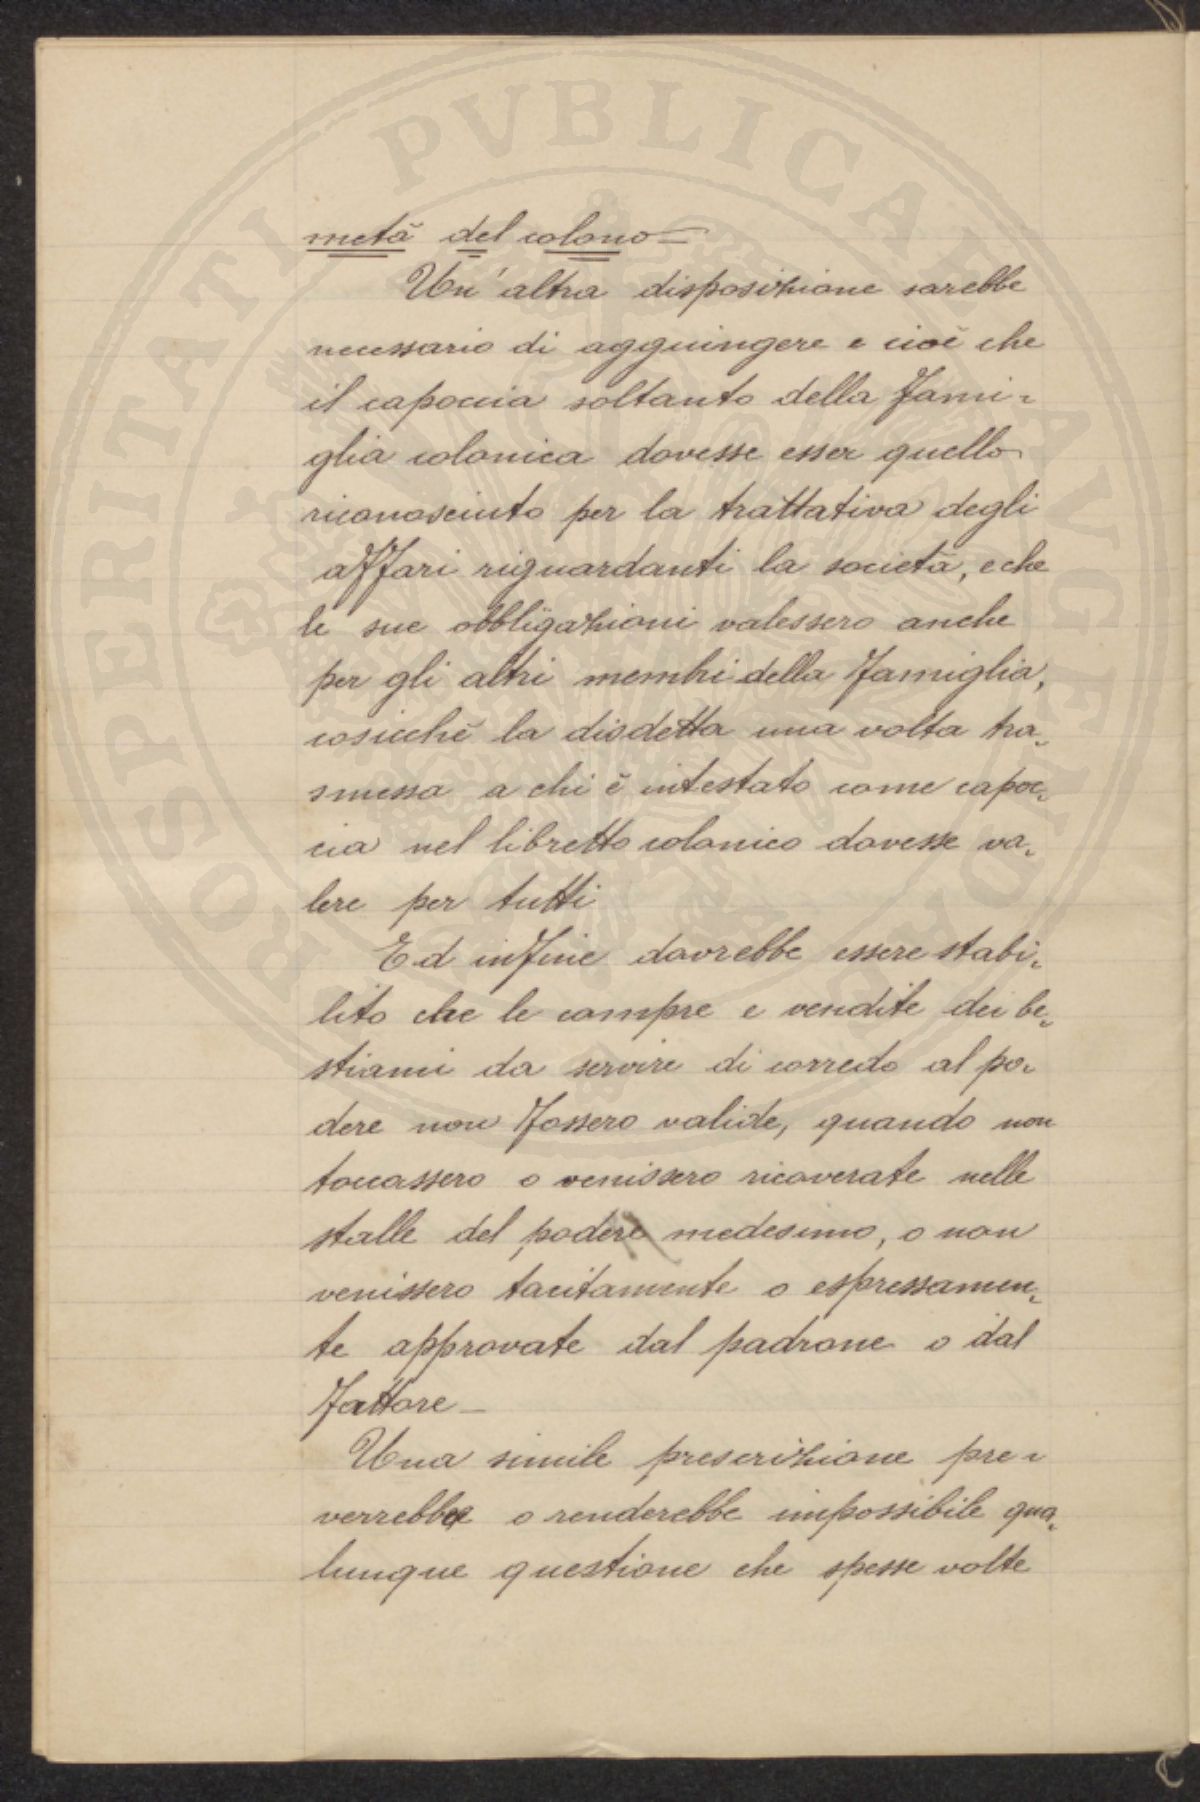 PROSPERITATI PVBLICAE AVGENDAE
metà del colono=
Un'altra disposizione sarebbe
necessario di agguingere e cioè che
il capoccia soltanto della fami-
glia colonica dovesse esser quello
riconosciuto per la trattativa degli
affari riguardanti la società, e che
le sue obbligazioni valessero anche
per gli altri membri della famiglia,
cosicchè la disdetta una volta tra-
smessa a chi è intestato come capoc-
cia nel libretto colonico dovesse va-
lere per tutti
Ed infine dovrebbe essere stabi-
lito che le compre e vendite dei be-
stiami da servire di corredo al po-
dere non fossero valide, quando non
toccassero o venissero ricoverate nelle
stalle del podere medesimo, o non
venissero tacitamente o espressamen-
te approvate dal padrone o dal
fattore—
Una simile prescrizione pre-
verrebbe o renderebbe impossibile qua-
lunque questione che spesse volte